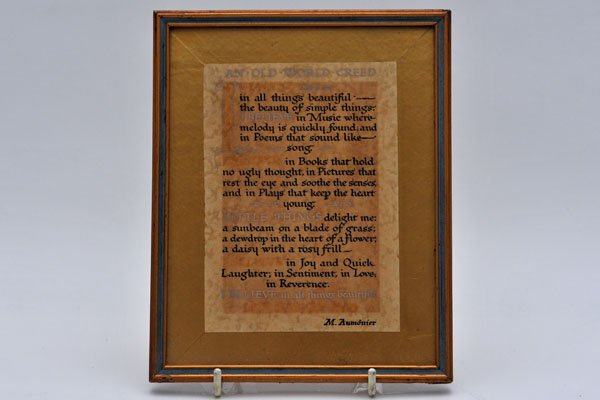 AN OLD WORLD CREED
in all things beautiful —
the beauty of simple things:
I BELIEVE in Music where-
melody is quickly found, and
in Poems that sound like —
song.
in Books that hold
no ugly thought, in Pictures that
rest the eye and soothe the senses,
and in Plays that keep the heart
young.
LITTLE THINGS delight me:
a sunbeam on a blade of grass;
a dewdrop in the heart of a flower;
a daisy with a rosy frill —
in Joy and Quick
Laughter; in Sentiment, in Love,
in Reverence.
I BELIEVE in all things beautiful
M. Aumônier